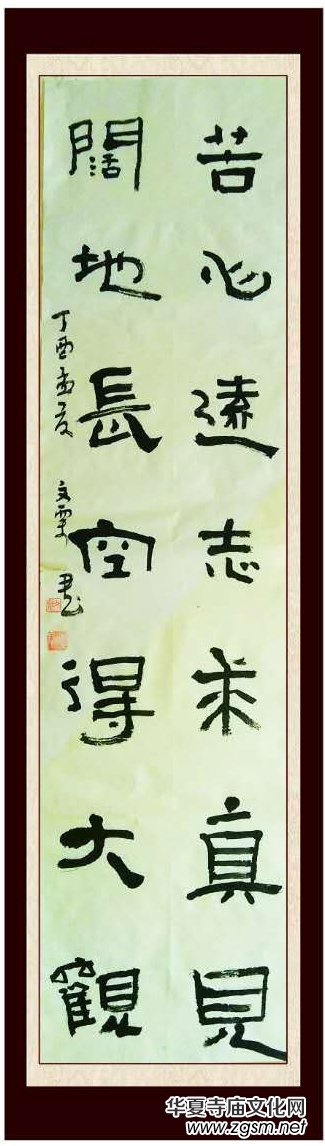 苦心遠志求真見
闊地長空得大觀
丁酉孟夏
文 書
华夏寺庙文化网
www.zgsm.net